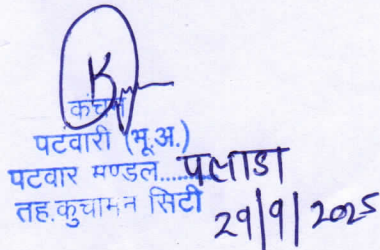 कंचन
पटवारी (भू.अ.)
पटवार मण्डल.....पलाडा
तह.कुचामन सिटी
29/9/2025